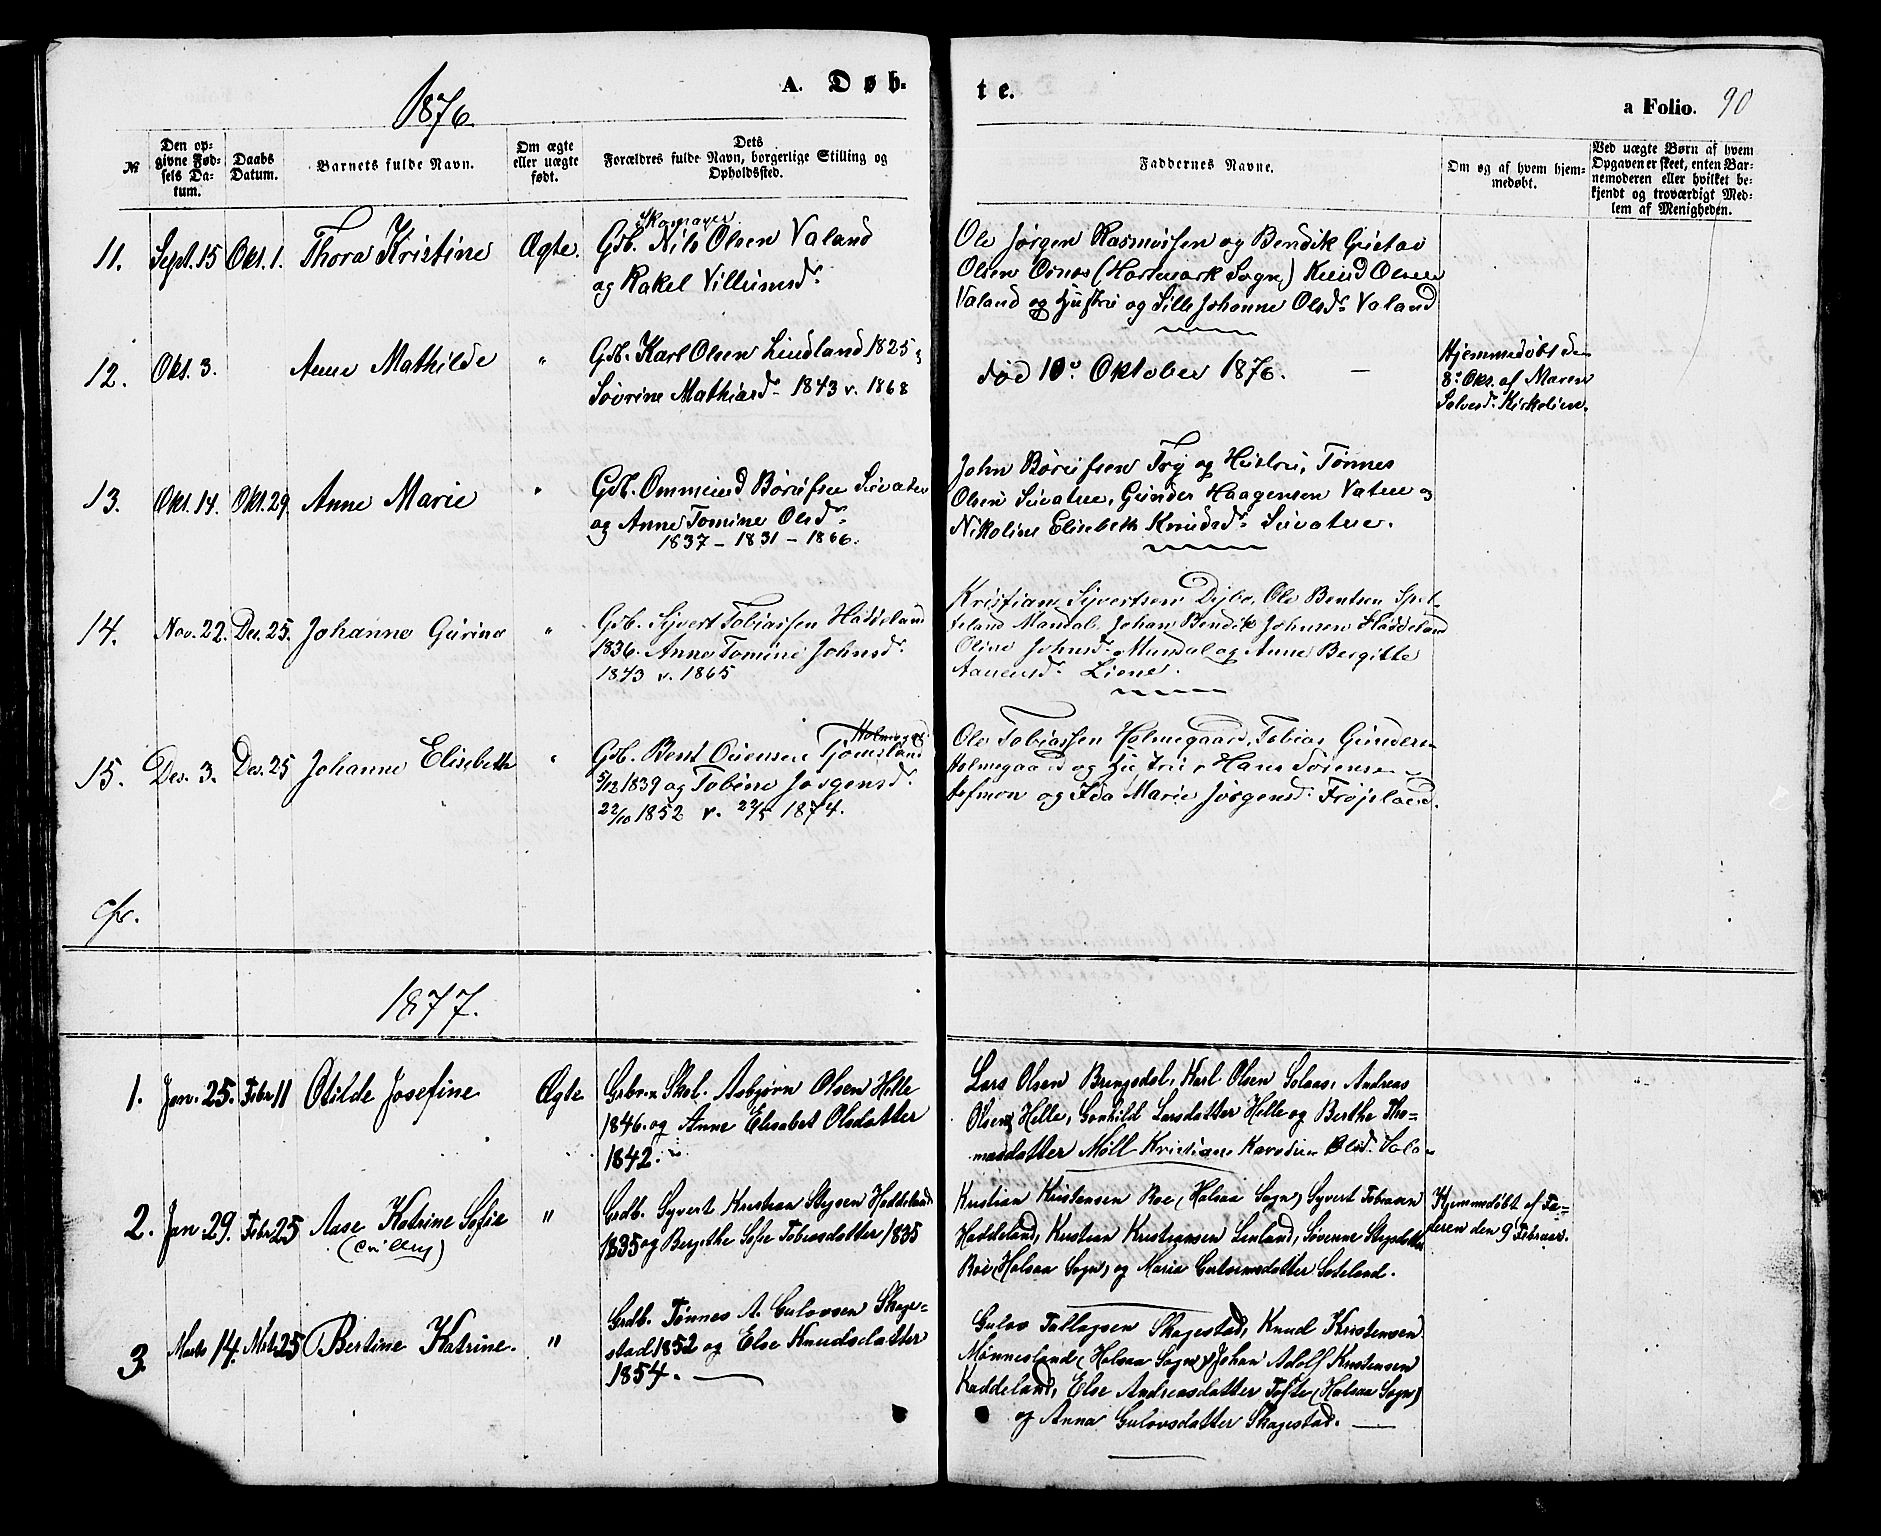 1876.
A. Døb-
te.
a Folio. 90
№
Den op-
givne Fød-
sels Da-
tum.
Daabs
Datum.
Barnets fulde Navn.
Om ægte
eller uægte
født.
Dets
Forældres fulde Navn, borgerlige Stilling og
Opholdssted.
Faddernes Navne.
Om og af hvem hjem-
medøbt.
Ved uægte Børn af hvem
Opgaven er skeet, enten Bar-
nemoderen eller hvilket be-
kjendt og troværdigt Med-
lem af Menigheden.
11. Sept. 15 Okt. 1. Thora Kristine Ægte.
Skomager
Gdb. Nils Olsen Valand
og Rakel Villumsd.
Ole Jørgen Rasmussen og Bendik Gustav
Olsen (Harkmark Sogn) Knud Olsen
Valand og Hustru og Sille Johanne Olsd. Valand
12. Okt. 3. Anne Mathilde "
Gdb. Karl Olsen Lindland 1825 og
Søvrine Mathiasd. 1843 v. 1868
død 10. Oktober 1876. —
Hjemmedøbt den
8. Okt. af Maren
Salvesd. Kirkelien.
13. Okt. 14. Okt. 29. Anne Marie "
Gdb. Ommund Børufsen
og Anne Tomine Olsd.
1837 – 1831 – 1866.
John Børufsen Try og Hustru, Tønnes
Olsen Gunder Haagensen Vatne og
Nikoline Elisebeth Knudsd.
14. Nov. 22. Des. 25. Johanne Gurine "
Gdb. Sjvert Tobiassen Haddeland
1836. Anne Tomine Johnsd.
1843 v. 1865
Kristiane Sjvertsen Dybo, Ole Bentsen Spet-
teland Mandal, Johan Bendik Johnsen Haddeland
Oline Johnsd. Mandal og Anne Bergitte
Aanensd. Liene.
15. Des. 3. Des. 25 Johanne Elisebeth "
Holmegaard
Gdb. Bent Ouensen Tjomsland
5/12 1839 og Tobine Jørgensd.
22/10 1852 v. 22/5 1874.
Ole Tobiassen Holmegaard, Tobias Gunders.
Holmegaard og Hustru, Hans Sørensen
Hesmon og Ida Marie Jørgensd. Frøjsland.
Cfr.
1877.
1. Jan. 25. Febr 11 Otilde Josefine Ægte
Grbr. & Skol. Asbjørn Olsen Helle
1846. og Anne Elisabet Olsdatter
1842.
Lars Olsen Bringsdal, Karl Olsen Solaas, Andreas
Olsen Helle, Gonhild Larsdatter Helle og Berthe Tho-
masdatter Møll Kristiane Olsd.
2. Jan 29. Febr 25 Aase Katrine Sofie "
(Tvilling)
Grdb. Syvert Kristian Stigsen Haddeland
1835 og Bergithe Sofie Tobiasdatter 1835
Kristian Kristensen Roe (Halsaa Sogn) Syvert Tobiasen
Haddeland, Kristian Kristiansen Lenland, Søvenne Stigsdatter
Roe, (Halsaa Sogn) og Maria Gutormsdatter Sodeland.
Hjemmedøbt af Fa-
deren den 9 Februar.
3. Marts 14. Mrts 25 Bertine Katrine. "
Grdb. Tønnes A. Gulovsen Skage-
stad. 1852 og Else Knudsdatter
1854. —
Gulov Tallagsen Skagestad, Knud Kristensen
Mønnesland (Halsaa Sogn) Johan Adolf Kristensen
Haddeland, Else Andreasdatter Tofte (Halsaa Sogn)
og Anna Gulovsdatter Skagestad. —